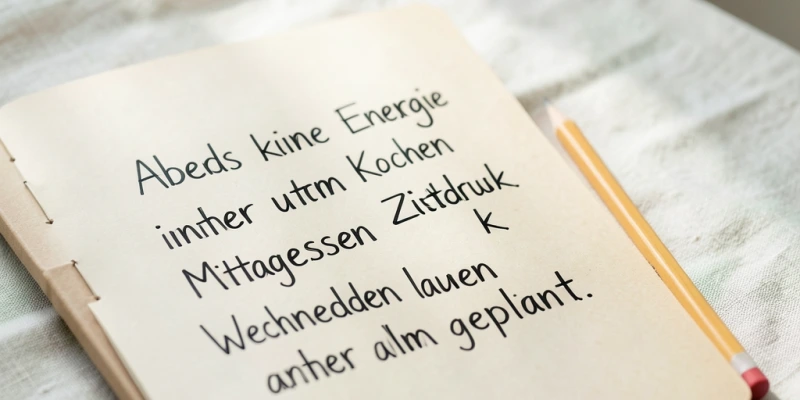 Abeds kiine Energie
iinther utτm Kochen
Mittagessen Zittdruιk
k
Wechnedden lauen
anther allm geplant.